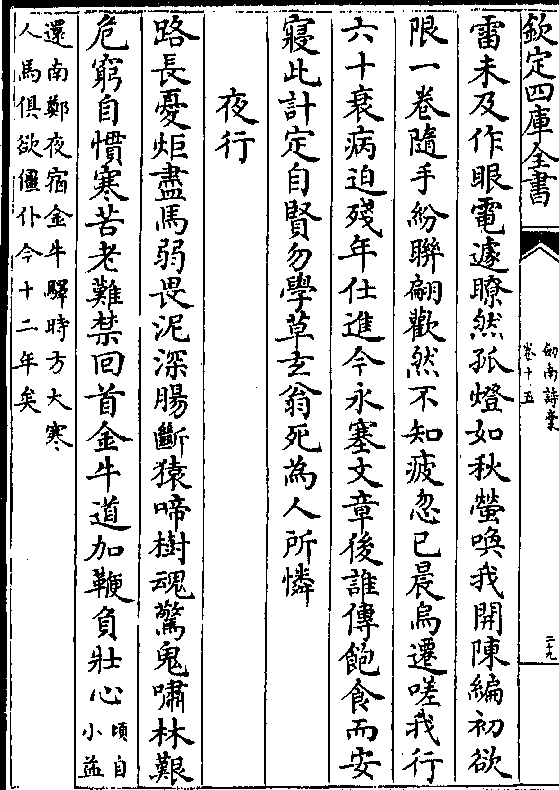 欽定四庫全書
劔南詩藳
卷十五
二十九
雷未及作眼電遽瞭然孤燈如秋螢喚我開陳編初欲
限一卷隨手紛聯翩歡然不知疲忽已晨烏遷嗟我行
六十衰病迫殘年仕進今永塞文章後誰傳飽食而安
寢此計定自賢勿學草玄翁死為人所憐
夜行
路長憂炬盡馬弱畏泥深腸斷猿啼樹魂驚鬼嘯林艱
危窮自慣寒苦老難禁回首金牛道加鞭負壯心
頃自
小益
還南鄭夜宿金牛驛時方大寒
人馬俱欲僵仆今十二年矣